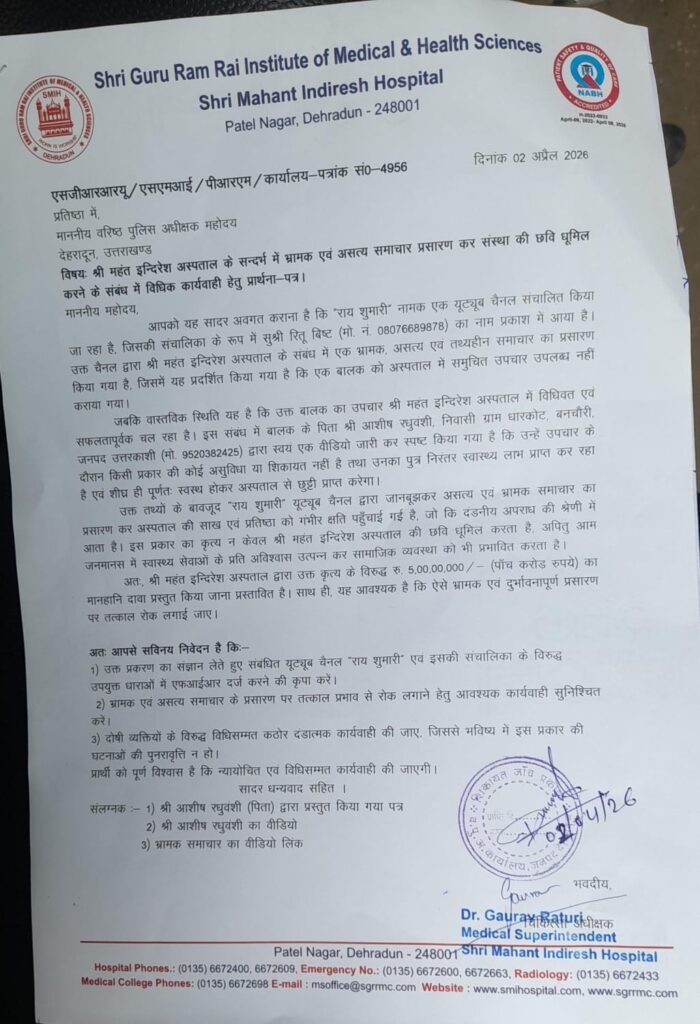 Shri Guru Ram Rai Institute of Medical & Health Sciences
Shri Mahant Indiresh Hospital
Patel Nagar, Dehradun - 248001
SHRI GURU RAM RAI INSTITUTE OF MEDICAL & HEALTH SCIENCES
SMIH
WORK IS WORSHIP
DEHRADUN
PATIENT SAFETY & QUALITY OF CARE
NABH
ACCREDITED
H-2022-0933
April-09, 2022- April 08, 2026
एसजीआरआरयू/एसएमआई/पीआरएम/कार्यालय-पत्रांक सं0-4956
दिनांक 02 अप्रैल 2026
प्रतिष्ठा में,
माननीय वरिष्ठ पुलिस अधीक्षक महोदय
देहरादून, उत्तराखण्ड
विषयः श्री महंत इन्दिरेश अस्पताल के सन्दर्भ में भ्रामक एवं असत्य समाचार प्रसारण कर संस्था की छवि धूमिल
करने के संबंध में विधिक कार्यवाही हेतु प्रार्थना-पत्र।
माननीय महोदय,
आपको यह सादर अवगत कराना है कि "राय शुमारी" नामक एक यूट्यूब चैनल संचालित किया
जा रहा है, जिसकी संचालिका के रूप में सुश्री रितू बिष्ट (मो. नं. 08076689878) का नाम प्रकाश में आया है।
उक्त चैनल द्वारा श्री महंत इन्दिरेश अस्पताल के संबंध में एक भ्रामक, असत्य एवं तथ्यहीन समाचार का प्रसारण
किया गया है, जिसमें यह प्रदर्शित किया गया है कि एक बालक को अस्पताल में समुचित उपचार उपलब्ध नहीं
कराया गया।
जबकि वास्तविक स्थिति यह है कि उक्त बालक का उपचार श्री महंत इन्दिरेश अस्पताल में विधिवत एवं
सफलतापूर्वक चल रहा है। इस संबंध में बालक के पिता श्री आशीष रघुवंशी, निवासी ग्राम धारकोट, बनचौरी,
जनपद उत्तरकाशी (मो. 9520382425) द्वारा स्वयं एक वीडियो जारी कर स्पष्ट किया गया है कि उन्हें उपचार के
दौरान किसी प्रकार की कोई असुविधा या शिकायत नहीं है तथा उनका पुत्र निरंतर स्वास्थ्य लाभ प्राप्त कर रहा
है एवं शीघ्र ही पूर्णतः स्वस्थ होकर अस्पताल से छुट्टी प्राप्त करेगा।
उक्त तथ्यों के बावजूद "राय शुमारी" यूट्यूब चैनल द्वारा जानबूझकर असत्य एवं भ्रामक समाचार का
प्रसारण कर अस्पताल की साख एवं प्रतिष्ठा को गंभीर क्षति पहुँचाई गई है, जो कि दंडनीय अपराध की श्रेणी में
आता है। इस प्रकार का कृत्य न केवल श्री महंत इन्दिरेश अस्पताल की छवि धूमिल करता है, अपितु आम
जनमानस में स्वास्थ्य सेवाओं के प्रति अविश्वास उत्पन्न कर सामाजिक व्यवस्था को भी प्रभावित करता है।
अतः, श्री महंत इन्दिरेश अस्पताल द्वारा उक्त कृत्य के विरुद्ध रु. 5,00,00,000/- (पाँच करोड रुपये) का
मानहानि दावा प्रस्तुत किया जाना प्रस्तावित है। साथ ही, यह आवश्यक है कि ऐसे भ्रामक एवं दुर्भावनापूर्ण प्रसारण
पर तत्काल रोक लगाई जाए।
अतः आपसे सविनय निवेदन है कि:-
1) उक्त प्रकरण का संज्ञान लेते हुए संबंधित यूट्यूब चैनल "राय शुमारी" एवं इसकी संचालिका के विरुद्ध
उपयुक्त धाराओं में एफआईआर दर्ज करने की कृपा करें।
2) भ्रामक एवं असत्य समाचार के प्रसारण पर तत्काल प्रभाव से रोक लगाने हेतु आवश्यक कार्यवाही सुनिश्चित
करें।
3) दोषी व्यक्तियों के विरुद्ध विधिसम्मत कठोर दंडात्मक कार्यवाही की जाए, जिससे भविष्य में इस प्रकार की
घटनाओं की पुनरावृत्ति न हो।
प्रार्थी को पूर्ण विश्वास है कि न्यायोचित एवं विधिसम्मत कार्यवाही की जाएगी।
सादर धन्यवाद सहित ।
संलग्नक :- 1) श्री आशीष रघुवंशी (पिता) द्वारा प्रस्तुत किया गया पत्र
2) श्री आशीष रघुवंशी का वीडियो
3) भ्रामक समाचार का वीडियो लिंक
शिकायत जाँच
02/04/26
भवदीय,
Gaurav
Dr. Gaurav Raturi
चिकित्सा अधीक्षक
Medical Superintendent
Shri Mahant Indiresh Hospital
Patel Nagar, Dehradun - 248001
Hospital Phones.: (0135) 6672400, 6672609, Emergency No.: (0135) 6672600, 6672663, Radiology: (0135) 6672433
Medical College Phones: (0135) 6672698 E-mail : msoffice@sgrrmc.com Website : www.smihospital.com, www.sgrrmc.com